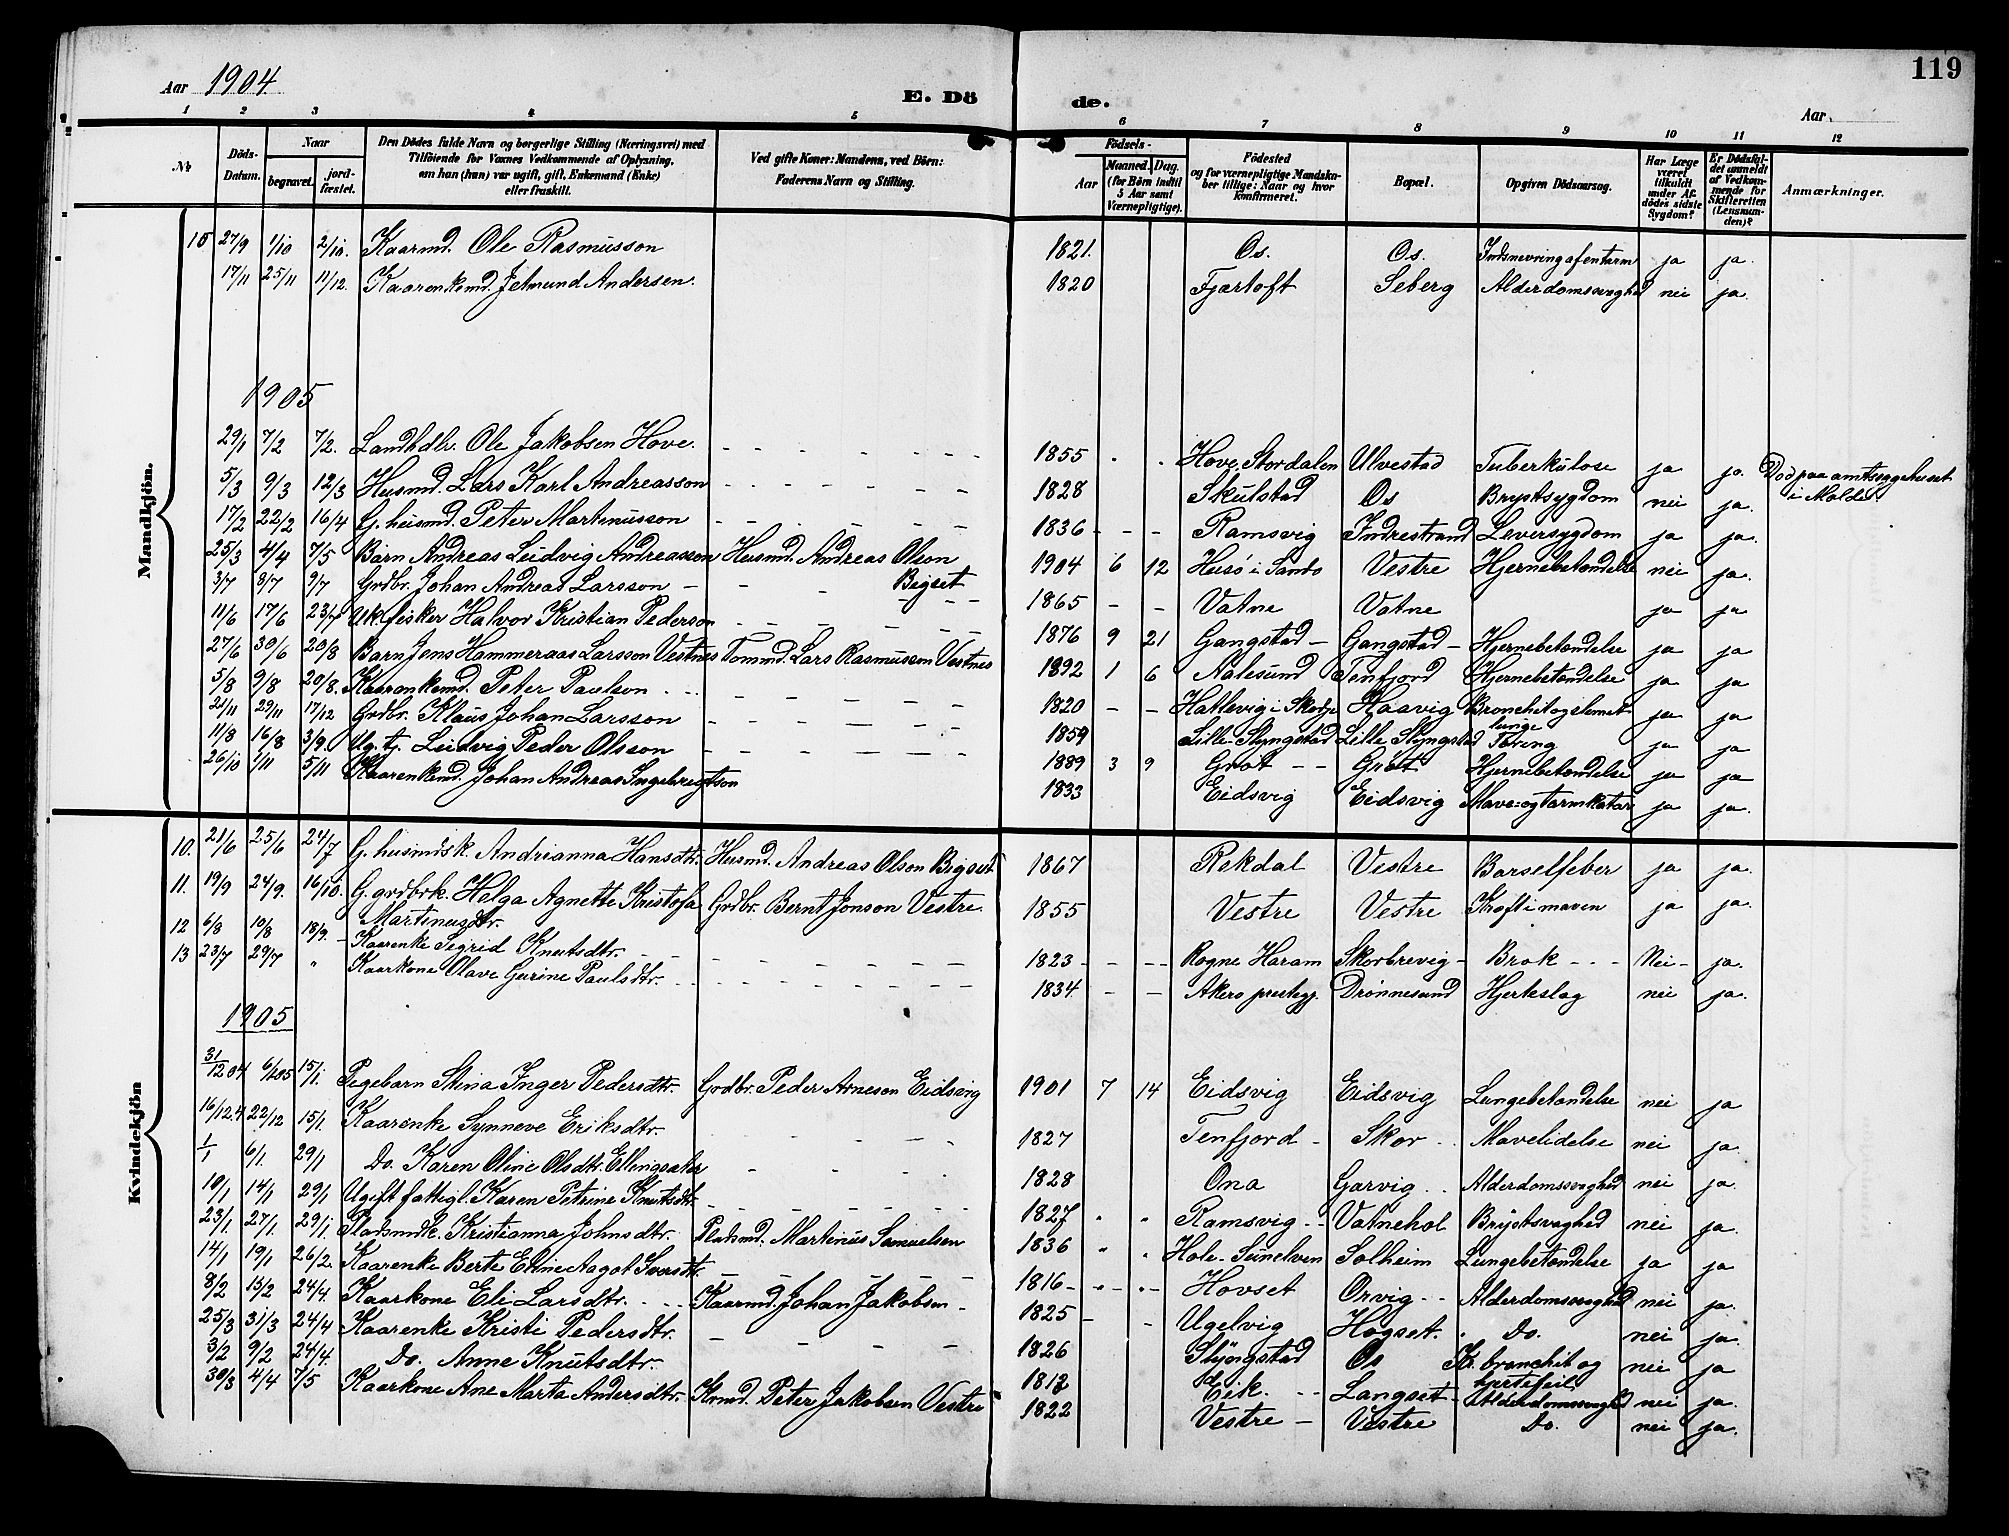 119
Aar 1904
E. Dö de.
Aar
1 2 3 4 5 6 7 8 9 10 11 12
№ Döds-Datum. Naar begravet. jordfæstet. Den Dödes fulde Navn og borgerlige Stilling (Næringsvei) med Tilföiende for Voxnes Vedkommende af Oplysning, om han (hun) var ugift, gift, Enkemand (Enke) eller fraskilt. Ved gifte Koner: Mandens, ved Börn: Faderens Navn og Stilling. Födsels- Aar Maaned. Dag. (for Börn indtil 5 Aar samt Værnepligtige). Födested og for værnepligtige Mandskaber tillige: Naar og hvor konfirmeret. Bopæl. Opgiven Dödsaarsag. Har Læge været tilkaldt under Afdödes sidste Sygdom? Er Dödsfaldet anmeldt af Vedkommende for Skifteretten (Lensmanden)? Anmærkninger.
Mandkjön.
15 27/9 1/10 2/10. Kaarmd. Ole Rasmusson 1821. Os. Os. Indsnevring af entarm ja ja.
17/11 25/11 11/12. Kaarenkemd. Jetmund Andersen. 1820 Fjærtoft Seberg Alderdomssvaghed nei ja.
1905
29/1 7/2 7/2. Landhdlr. Ole Jakobsen Hove. 1855 Hove, Stordalen Ulvestad Tuberkulose ja ja. Död paa amtssygehuset i Molde.
5/3 9/3 12/3 Husmd. Lars Karl Andreasson 1828 Skulstad Os Brystsygdom nei ja.
17/2 22/2 16/4 G. husmd. Peter Martinusson 1836 - - - Ramsvig Indrestrand Leversygdom ja ja.
25/3 4/4 7/5 Barn Andreas Ludvig Andreasson Husmd. Andreas Olson Bigset 1904 6 12 Husö i Sandö Vestre Hjernebetændelse nei ja.
3/7 8/7 9/7 Grdbr. Johan Andreas Larsson 1865 - - Vatne Vatne ja ja
11/6 17/6 23/7 Ukfisker Halvor Kristian Pederson 1876 9 21 Gangstad - Gangstad - Hjernebetændelse ja ja
27/6 30/6 20/8 Barn Jens Hammeraas Larsson Vestnes Tommd. Lars Rasmusson Vestnes 1892 1 6 Aalesund Tenfjord Hjernebetændelse ja ja
5/8 9/8 20/8. Kaarenkemd. Peter Paulson 1820 - - Hatlevig i Skodje Haavig Bronchit og lunge ja ja
21/11 29/11 17/12 Grdbr. Klaus Johan Larsson 1859 Lille Slyngstad Lille Slyngstad Tæring ja ja
11/8 16/8 3/9. Ug. tj. Ludvig Peder Olsson 1889 3 9 Gröt - - Gröt Hjernebetændelse ja ja
26/10 1/11 5/11 Kaarenkemd. Johan Andreas Ingebregtson 1833 Eidsvig Eidsvig Mave= og tarmkatar ja ja.
Kvindekjön
10. 21/6 25/6 24/7 G. husmdsk. Andrianna Hansdtr. Husmd. Andreas Olson Bigset 1867 Rekdal Vestre Barselfeber ja ja.
11. 19/9 24/9. 16/10. G. grdbrk. Helga Agnette Kristofa Martinusdtr. Grdbr. Bernt Jonson Vestre. 1855 Vestre Vestre Kræft i maven ja ja.
12 6/8 10/8 18/9. Kaarenke Sigrid Knutsdtr. 1823 - - - Rogne Haram Skorbrevig - Brok - - - Nei - ja.
13 23/7 29/7 " Kaarkone Olave Gurine Paulsdtr. 1834 - - Akerö prestegj. Drönnesund Hjerteslag nei ja.
1905
31/12 04 6/1 05 15/1. Pigebarn Stina Inger Pedersdtr. Grdbr. Peder Arneson Eidsvig 1901 7 14 Eidsvig Eidsvig Lungebetændelse nei ja
16/12.4 22/12 15/1. Kaarenke Synneve Eriksdtr. 1827 Tenfjord - Skor Mavelidelse nei ja.
1/1 6/1. 29/1 Do. Karen Oline Olsdtr. Ellingsæter 1828 Ona Garvig Alderdomssvaghed nei ja.
10/1 14/1 29/1 Ugift fattigl. Karen Petrine Knutsdtr. 1827 Ramsvig Vatnehol Brystsvaghed nei ja.
23/1 27/1. 29/1 Pladsmdk. Kristianna Johnsdtr. Pladsmd. Martinus Samuelsen 1836 Hole - Sunelven Solheim Lungebetændelse ja ja
14/1 19/1 26/2. Kaarenke Berte Eline Aagot Iversdtr. 1816 - Hovset Orvig Alderdomssvaghed nei ja.
8/2 15/2 24/4. Kaarkone Eli Larsdtr. Kaarmd. Johan Jakobsen 1825 - - Ugelvig Högset Do. nei ja.
25/3 31/3 24/4 Kaarenke Kristi Pedersdtr. 1826 Slyngstad Os Kr. bronchit og hjertefeil nei ja
3/2 9/2 24/4. Do. Anne Knutsdtr. 1812 Eik. Langset Alderdomssvaghed nei ja.
30/3 4/4 7/5 Kaarkone Ane Marta Andersdtr. Krmd. Peter Jakobsen Vestre 1822 Vestre - Vestre Do. nei ja.